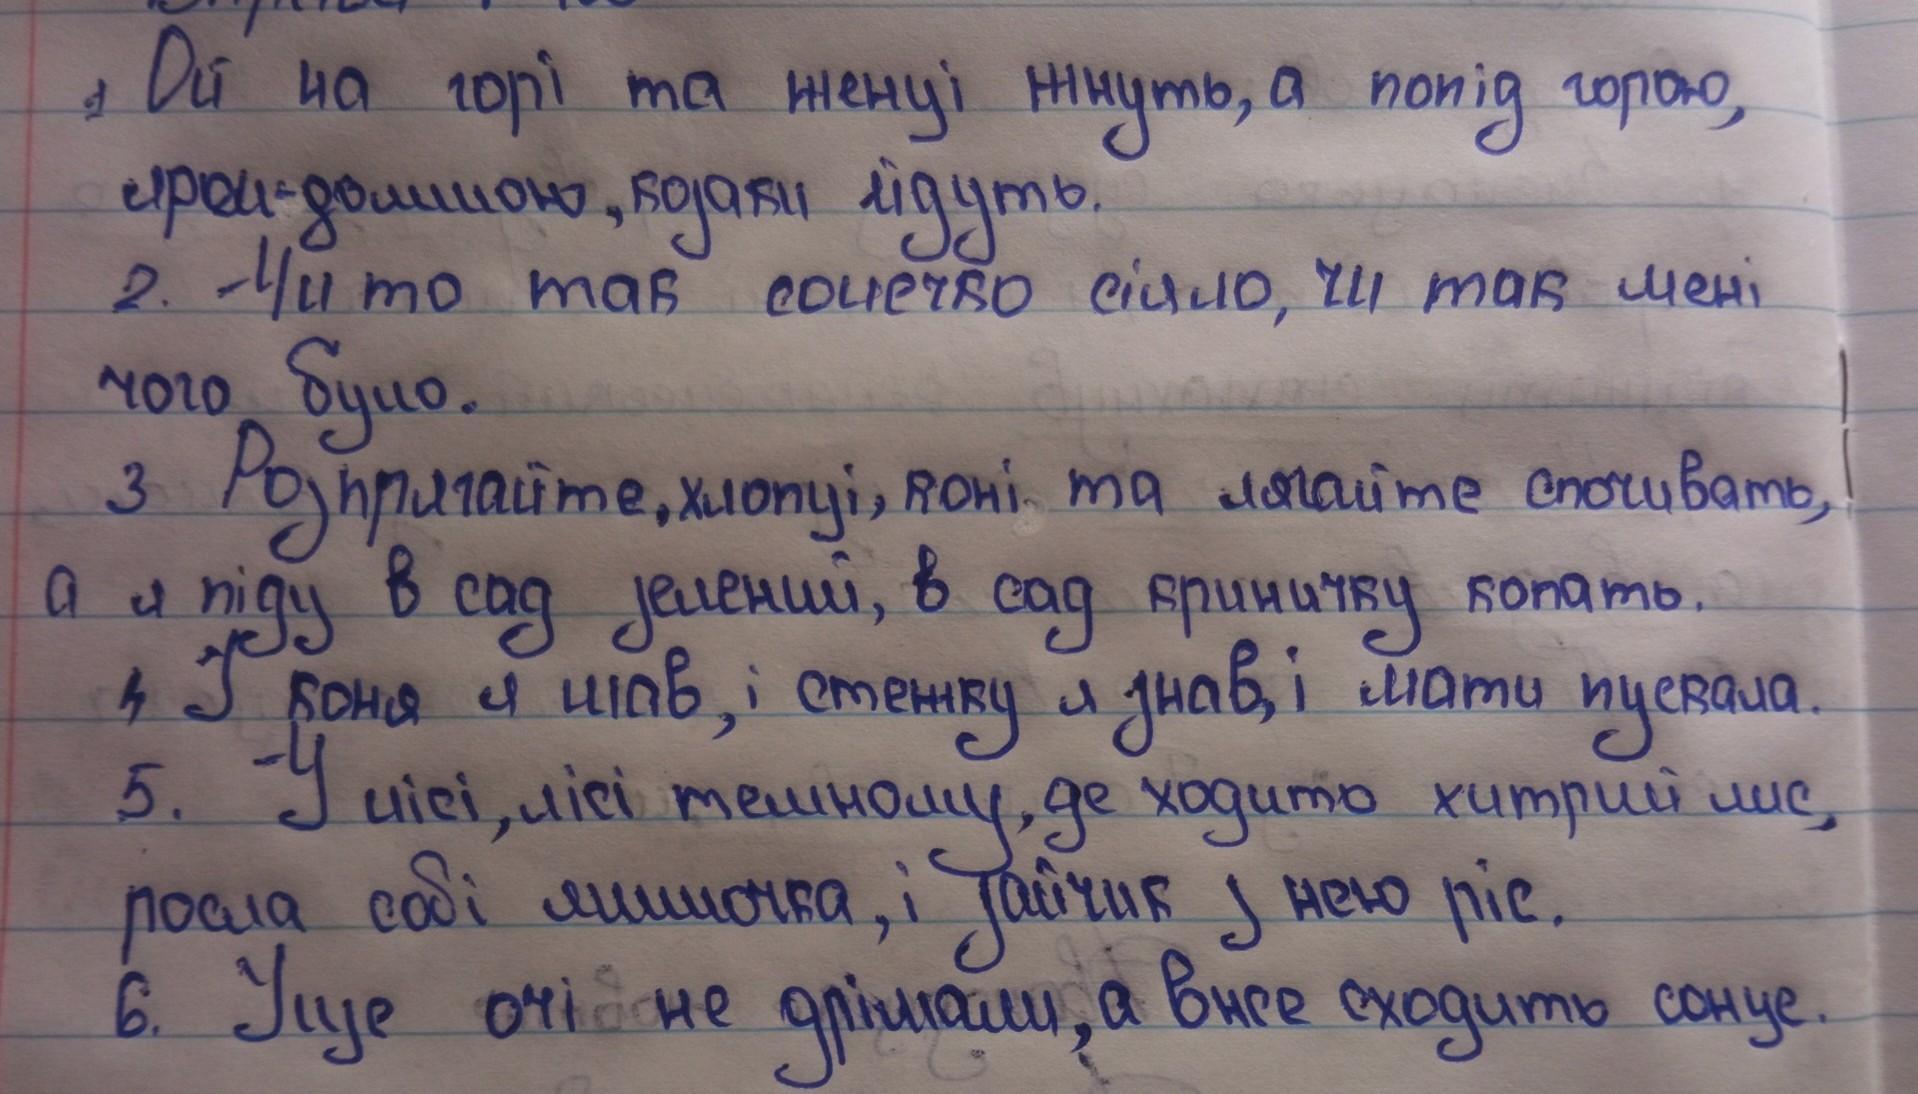 1 Ой на горі та женці жнуть, а попід горою,
яром-долиною, козаки йдуть.
2. - Чи то так сонечко сіяло, чи так мені
чого було.
3 Розпрягайте, хлопці, коні та лягайте спочивать,
а я піду в сад зелений, в сад криничку копать.
4 І коня я мав, і стежку я знав, і мати пускала.
5. - У лісі, лісі темному, де ходить хитрий лис,
росла собі ялиночка, і зайчик з нею ріс.
6. Іще очі не дрімали, а вже сходить сонце.